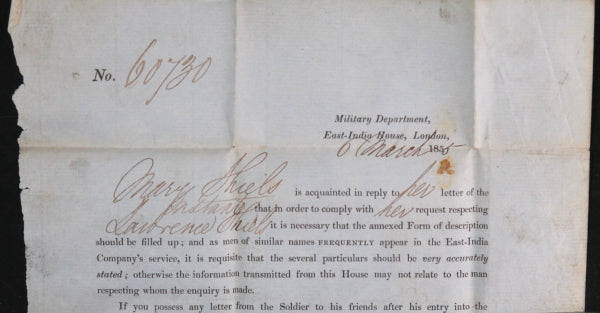 No. 60730
Military Department,
East-India House, London,
6 March 1855
Mary Shiels is acquainted in reply to her letter of the
that in order to comply with her request respecting
Lawrence Shiels it is necessary that the annexed Form of description
should be filled up; and as men of similar names FREQUENTLY appear in the East-India
Company's service, it is requisite that the several particulars should be very accurately
stated; otherwise the information transmitted from this House may not relate to the man
respecting whom the enquiry is made.
If you possess any letter from the Soldier to his friends after his entry into the